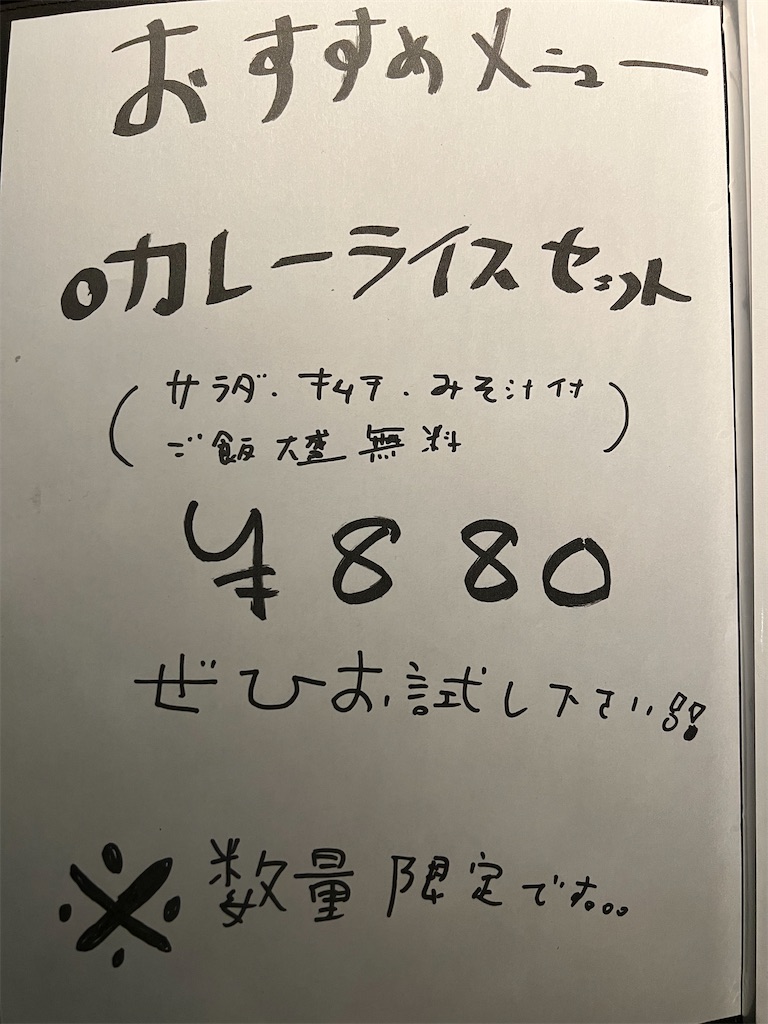 おすすめメニュー
○カレーライスセット
(サラダ・キムチ・みそ汁付
ご飯大盛無料)
¥880
ぜひお試し下さい!!
※数量限定です。。。